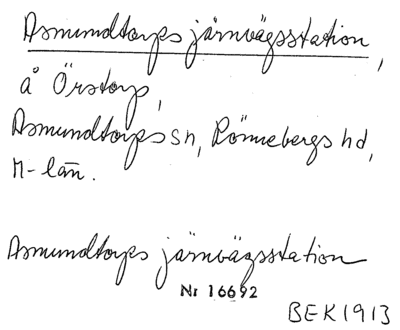 Asmundtorps järnvägsstation,
å Örstorp,
Asmundtorps sn, Rönnebergs hd,
M-län.
Asmundtorps järnvägsstation
Nr 16692
BEK1913